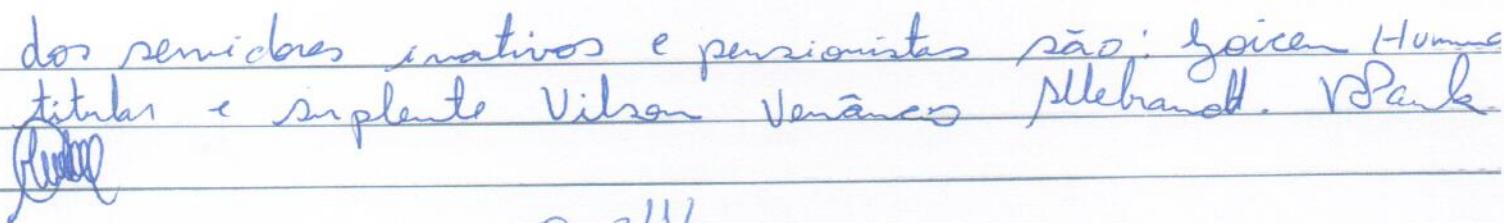 dos servidores inativos e pensionistas são: Joicen
titular e suplente Vilson Venâncio